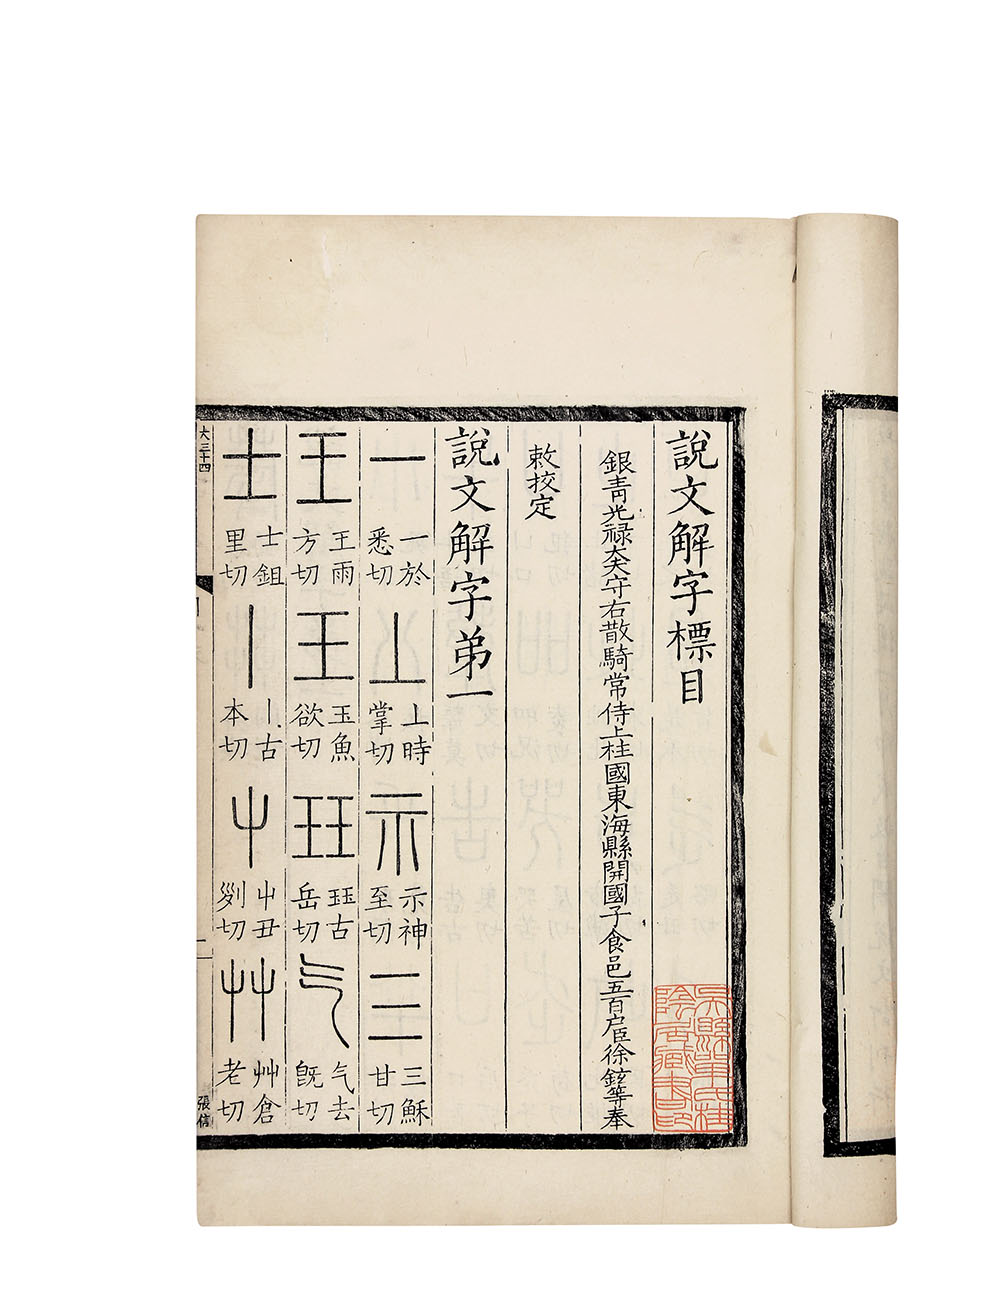 說文解字標目
銀青光祿大夫守右散騎常侍上柱國東海縣開國子食邑五百戶臣徐鉉等奉
敕校定
說文解字弟一
一 一於悉切 丄 丄時掌切 示 示神至切 三 三穌甘切
王 王雨方切 玉 玉魚欲切 玨 珏古岳切 气 气去既切
士 士鉏里切 丨 丨古本切 屮 屮丑列切 艸 艸倉老切
大三十四
張信
吳縣單氏桂陰居藏書印